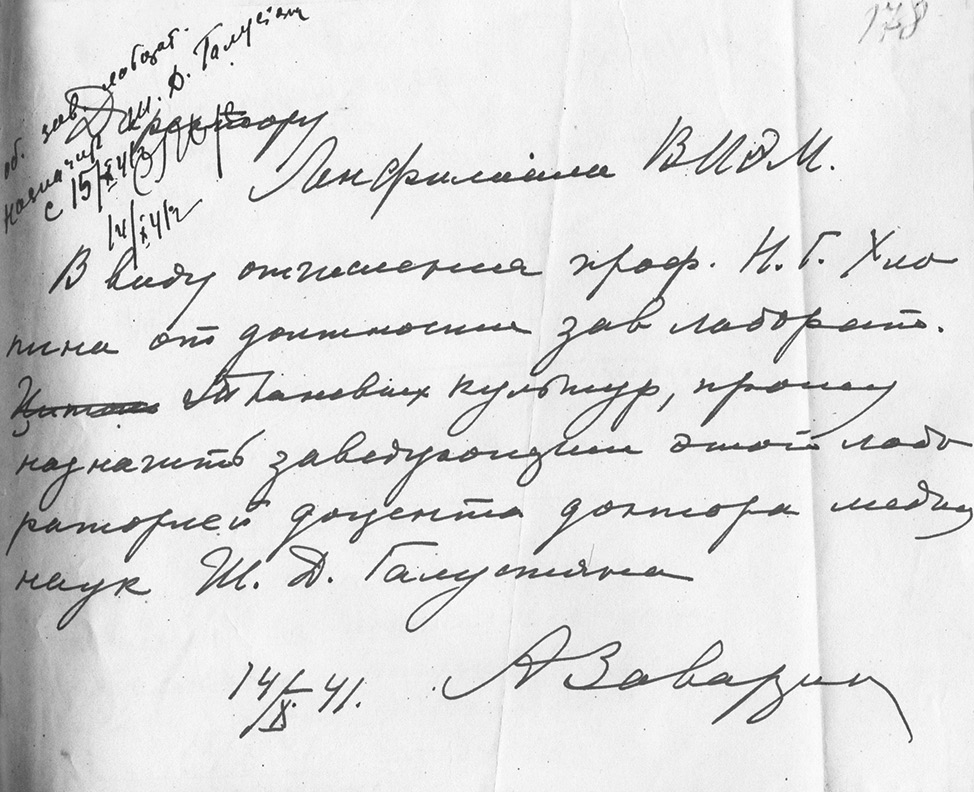 178
об. зав. лаборат.
назначить Ш. Д. Галустян
с 15/X 41г
14/X 41г
Директору
Ленфилиала ВИЭМ.
В виду отчисления проф. Н. Г. Хло
пина от должности зав лаборат.
Тканевых культур, прошу
назначить заведующим этой лабо
раторией доцента доктора медиц
наук Ш. Д. Галустяна
14/X 41. А Заварзин